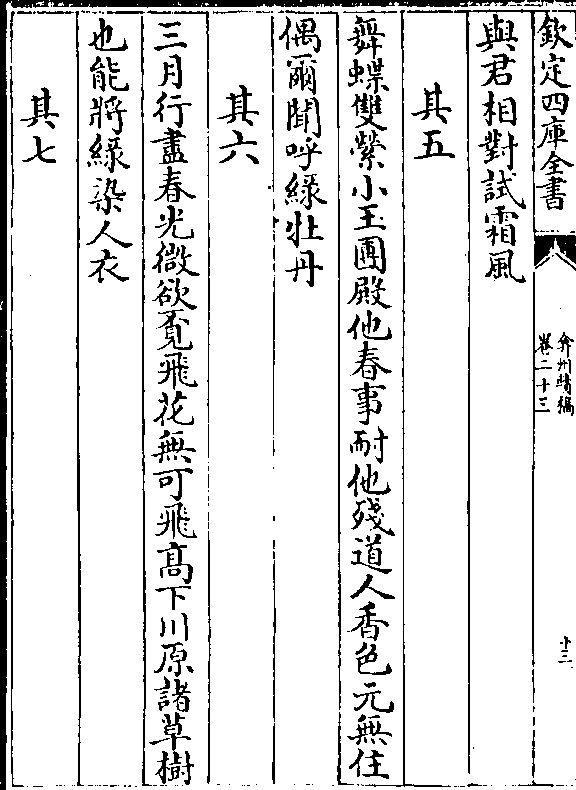 欽定四庫全書
弇州續稿
卷二十三
十三
與君相對試霜風
其五
舞蝶雙縈小玉團殿他春事耐他殘道人香色元無住
偶爾聞呼綠牡丹
其六
三月行盡春光微欲覔飛花無可飛髙下川原諸草樹
也能將綠染人衣
其七